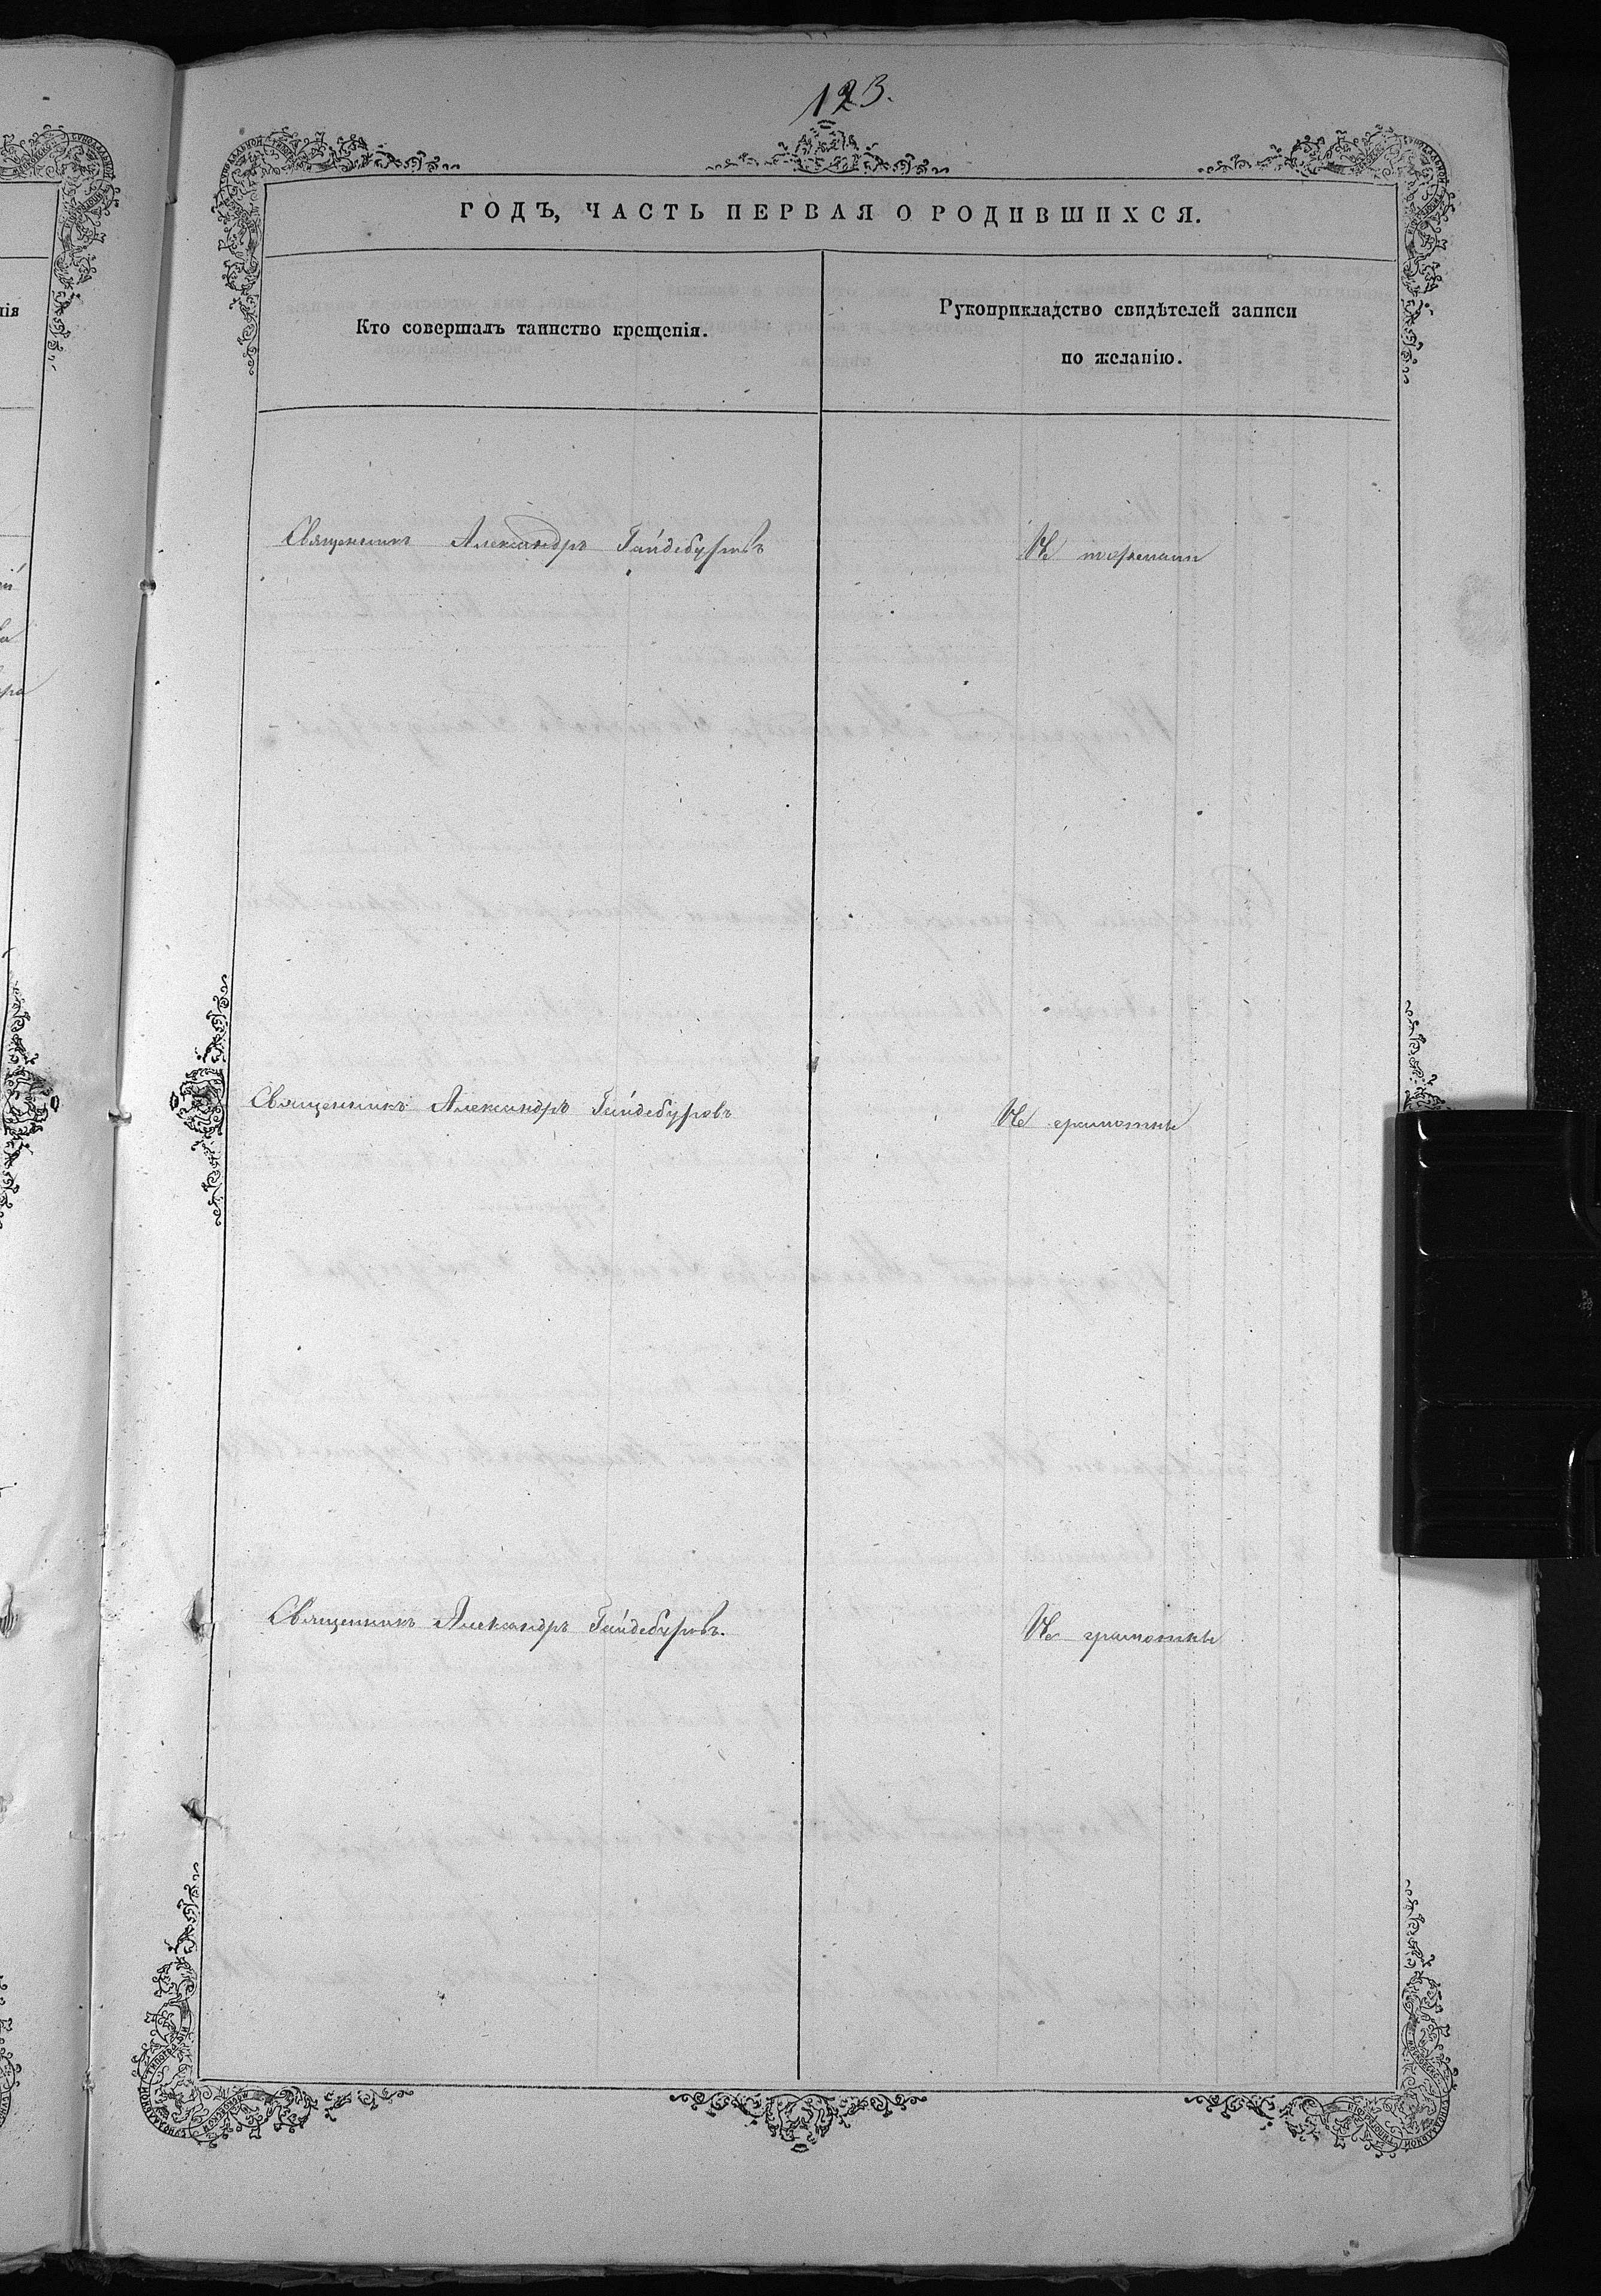 123.
ГОДЪ, ЧАСТЬ ПЕРВАЯ О РОДИВШИХСЯ.
Кто совершалъ таинство крещенія.
Рукоприкладство свидѣтелей записи
по желанію.
Священникъ Александръ Гайдебуровъ
Не
Священникъ Александръ Гайдебуровъ
Не грамотны
Священникъ Александръ Гайдебуровъ.
Не грамотны